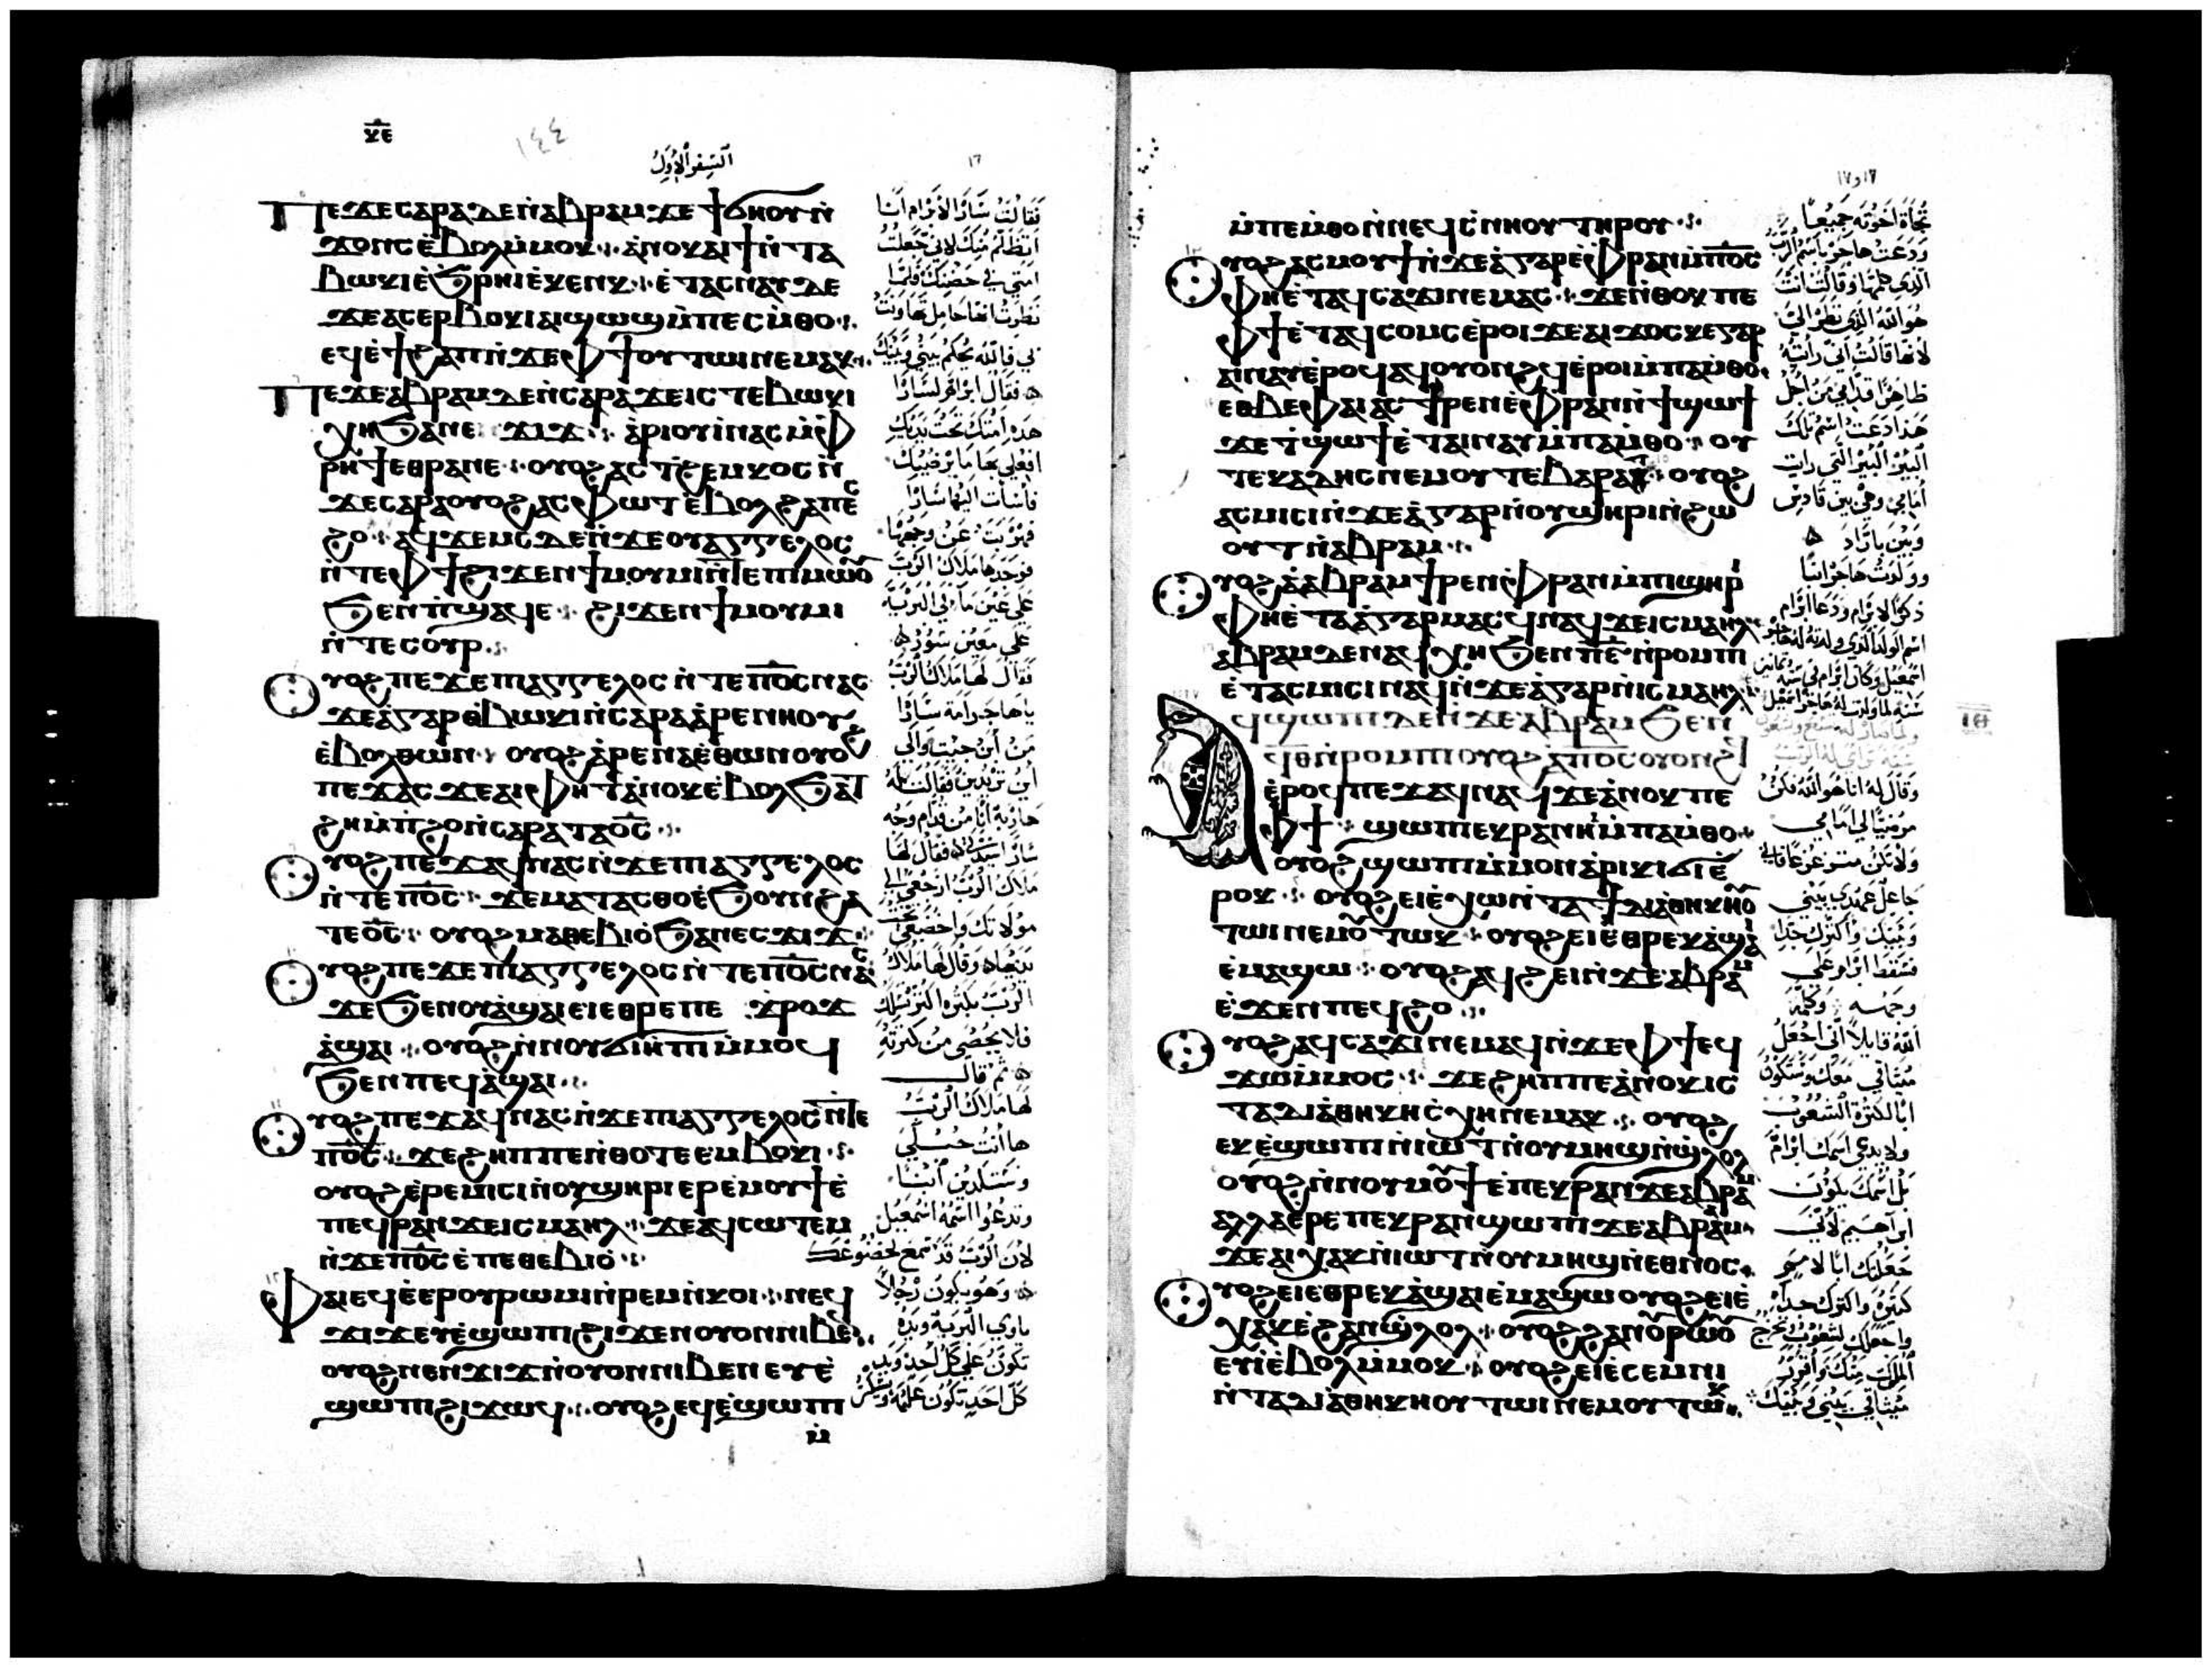 ⲕⲉ
١٤٤
السفر الاول
١٦
ⲡⲉϫⲉⲥⲁⲣⲁ ⲇⲉ ⲛ̀ⲁⲃⲣⲁⲙ ϫⲉ ϯϭⲏⲟⲩ ⲛ̀
ϫⲟⲛⲥ ⲉ̀ⲃⲟⲗ ⲙ̀ⲙⲟⲕ ⲁ̀ⲛⲟⲕ ⲁⲓϯ ⲛ̀ⲧⲁ
ⲃⲱⲕⲓ ⲉ̀ϧⲣⲏⲓ ⲉ̀ⲕⲉⲛⲕ ⲉ̀ⲧⲁⲥⲛⲁⲩ ⲇⲉ
ϫⲉ ⲁⲥⲉⲣⲃⲟⲕⲓ ⲁⲓϣⲱϣ ⲙ̀ⲡⲉⲥⲙ̀ⲑⲟ
ⲉϥⲉ̀ϯϩⲁⲡ ⲛ̀ϫⲉ ⲫϯ ⲟⲩⲧⲱⲓ ⲛⲉⲙⲁⲕ
ⲡⲉϫⲉ ⲁⲃⲣⲁⲙ ⲇⲉ ⲛ̀ⲥⲁⲣⲁ ϫⲉ ⲓⲥ ⲧⲉⲃⲱⲕⲓ
ⲭⲏ ϧⲁ ⲛⲉϫⲓϫ ⲁⲣⲓⲟⲩⲓ ⲛⲁⲥ ⲙ̀ⲫ
ⲣⲏϯ ⲉⲑⲣⲁⲛⲉ ⲟⲩⲟϩ ⲁⲥⲧϩⲉⲙⲕⲟⲥ ⲛ̀
ϫⲉ ⲥⲁⲣⲁ ⲟⲩⲟϩ ⲁⲥⲫⲱⲧ ⲉ̀ⲃⲟⲗ ϩⲁ ⲡⲉⲥ
ϩⲟ ⲁϥϫⲉⲙⲥ ⲇⲉ ⲛ̀ϫⲉ ⲟⲩⲁⲅⲅⲉⲗⲟⲥ
ⲛ̀ⲧⲉ ⲫϯ ϩⲓϫⲉⲛ ϯⲙⲟⲩⲙⲓ ⲛ̀ⲧⲉ ⲡⲓⲙⲱⲟⲩ
ϧⲉⲛ ⲡ̀ϣⲁϥⲉ ϩⲓϫⲉⲛ ϯⲙⲟⲩⲙⲓ
ⲛ̀ⲧⲉ ⲥⲟⲩⲣ
ⲟⲩⲟϩ ⲡⲉϫⲉ ⲡⲓⲁⲅⲅⲉⲗⲟⲥ ⲛ̀ⲧⲉ ⲡⲟ̅ⲥ̅ ⲛⲁⲥ
ϫⲉ ⲁ̀ⲅⲁⲣ ⲑ̀ⲃⲱⲕⲓ ⲛ̀ⲥⲁⲣⲁ ⲁ̀ⲣⲉⲛⲛⲏⲟⲩ
ⲉ̀ⲃⲟⲗ ⲑⲱⲛ ⲟⲩⲟϩ ⲁ̀ⲣⲉⲛⲁ ⲉ̀ⲑⲱⲛ ⲟⲩⲟϩ
ⲡⲉϫⲁⲥ ϫⲉ ⲁⲓⲫⲏⲧ ⲁ̀ⲛⲟⲕ ⲉ̀ⲃⲟⲗ ϧⲁⲧ
ϩⲏ ⲙ̀ⲡϩⲟ ⲛ̀ⲥⲁⲣⲁ ⲧⲁⲟ̅ⲥ̅
ⲟⲩⲟϩ ⲡⲉϫⲁϥ ⲛⲁⲥ ⲛ̀ϫⲉ ⲡⲓⲁⲅⲅⲉⲗⲟⲥ
ⲛ̀ⲧⲉ ⲡⲟ̅ⲥ̅ ϫⲉ ⲙⲁⲧⲁⲥⲑⲟ ⲉ̀ϧⲟⲩⲛ ϩⲁ
ⲧⲉⲟ̅ⲥ̅ ⲟⲩⲟϩ ⲙⲁⲑⲉⲃⲓⲟ̀ ϧⲁ ⲛⲉⲥϫⲓϫ
ⲟⲩⲟϩ ⲡⲉϫⲉ ⲡⲓⲁⲅⲅⲉⲗⲟⲥ ⲛ̀ⲧⲉ ⲡⲟ̅ⲥ̅ ⲛⲁⲥ
ϫⲉ ϧⲉⲛ ⲟⲩⲁ̀ϣⲁⲓ ⲉⲓⲉⲑⲣⲉ ⲡⲉϫⲣⲟϫ
ⲁ̀ϣⲁⲓ ⲟⲩⲟϩ ⲛ̀ⲛⲟⲩϭⲓⲏ̀ⲡⲓ ⲙ̀ⲙⲟϥ
ϧⲉⲛ ⲡⲉϥⲁ̀ϣⲁⲓ
ⲟⲩⲟϩ ⲡⲉϫⲁϥ ⲛⲁⲥ ⲛ̀ϫⲉ ⲡⲓⲁⲅⲅⲉⲗⲟⲥ ⲛ̀ⲧⲉ
ⲡⲟ̅ⲥ̅ ϫⲉ ϩⲏⲡⲡⲉ ⲛ̀ⲑⲟ ⲧⲉⲉⲙⲃⲟⲕⲓ
ⲟⲩⲟϩ ⲉ̀ⲣⲉⲙⲓⲥⲓ ⲛ̀ⲟⲩϣⲏⲣⲓ ⲉⲣⲉ̀ⲙⲟⲩϯ ⲉ̀
ⲡⲉϥⲣⲁⲛ ϫⲉ ⲓⲥⲙⲁⲏⲗ ϫⲉ ⲁϥⲥⲱⲧⲉⲙ
ⲛ̀ϫⲉ ⲡⲟ̅ⲥ̅ ⲉ̀ⲡⲉⲑⲉⲃⲓⲟ̀
ⲫⲁⲓ ⲉϥⲉ̀ⲉⲣ ⲟⲩⲣⲱⲙⲓ ⲛ̀ⲣⲉⲙⲛ̀ⲕⲟⲓ ⲛⲉϥ
ϫⲓϫ ⲉⲩⲉ̀ϣⲱⲡⲓ ϩⲓϫⲉⲛ ⲟⲩⲟⲛ ⲛⲓⲃⲉⲛ
ⲟⲩⲟϩ ⲛⲉⲛϫⲓϫ ⲛ̀ⲟⲩⲟⲛ ⲛⲓⲃⲉⲛ ⲉⲩⲉ̀
ϣⲱⲡⲓ ϩⲓϫⲱϥ ⲟⲩⲟϩ ⲉϥⲉ̀ϣⲱⲡⲓ
ⲙ̀
فقالت سارا لابرام انا
انظلم منك لاني جعلت
امتي في حضنك فلما
نظرت انها حامل تهاونت
بي فالله يحكم بيني وبينك
فقال ابرام لسارا
هذه امتك تحت يديك
افعلي بها ما يرضيك
فاسأت اليها سارا
فهربت عن وجهها
فوجدها ملاك الرب
على عين ماء في البرية
على معين سور
فقال لها ملاك الرب
يا هاجر امة سارا
من اين جيت والى
اين تريدين فقالت له
هاربة انا من قدام وجه
سارا سيدتي فقال لها
ملاك الرب ارجعي الى
مولاتك واخضعي تحت
يديها وقال لها ملاك
الرب بكثرة اكثر نسلك
فلا يحصى من كثرته
ثم قال
لها ملاك الرب
ها انت حبلى
وستلدين ابنا
وتدعوا اسمه اسمعيل
لان الرب قد سمع لخضوعك
وهو يكون رجلا
ياوي البرية ويده
تكون على كل احد ويد
كل احد تكون عليه
١٦ و ١٧
ⲙ̀ⲡⲉⲙ̀ⲑⲟ ⲛ̀ⲛⲉϥⲥ̀ⲛⲏⲟⲩ ⲧⲏⲣⲟⲩ
ⲟⲩⲟϩ ⲁⲥⲙⲟⲩϯ ⲛ̀ϫⲉ ⲁ̀ⲅⲁⲣ ⲉ̀ⲫⲣⲁⲛ ⲙ̀ⲡⲟ̅ⲥ̅
ⲫⲏ ⲉ̀ⲧⲁϥⲥⲁϫⲓ ⲛⲉⲙⲁⲥ ϫⲉ ⲛ̀ⲑⲟⲕ ⲡⲉ
ⲫϯ ⲉ̀ⲧⲁϥⲥⲟⲙⲥ ⲉ̀ⲣⲟⲓ ϫⲉ ⲁⲓϫⲟⲥ ⲕⲉⲅⲁⲣ
ⲁⲓⲛⲁⲩ ⲉ̀ⲣⲟϥ ⲁϥⲟⲩⲟⲛϩϥ ⲉ̀ⲣⲟⲓ ⲙ̀ⲡⲁⲙ̀ⲑⲟ
ⲉⲑⲃⲉ ⲫⲁⲓ ⲁⲥϯⲣⲉⲛ ⲉ̀ⲫⲣⲁⲛ ⲛ̀ϯϣⲱϯ
ϫⲉ ϯϣⲱϯ ⲉ̀ⲧⲁⲓⲛⲁⲩ ⲙ̀ⲡⲁⲙ̀ⲑⲟ ⲟⲩ
ⲧⲉ ⲕⲁⲇⲏⲥ ⲛⲉⲙ ⲟⲩⲧⲉ ⲃⲁⲣⲁⲇ ⲟⲩⲟϩ
ⲁⲥⲙⲓⲥⲓ ⲛ̀ϫⲉ ⲁ̀ⲅⲁⲣ ⲛ̀ⲟⲩϣⲏⲣⲓ ⲛ̀ϩⲱ
ⲟⲩⲧ ⲛ̀ⲁⲃⲣⲁⲙ
ⲟⲩⲟϩ ⲁ̀ⲁⲃⲣⲁⲙ ϯⲣⲉⲛ ⲉ̀ⲫⲣⲁⲛ ⲙ̀ⲡⲓϣⲏⲣⲓ
ⲫⲏ ⲉ̀ⲧⲁ ⲁ̀ⲅⲁⲣ ⲙⲁⲥϥ ⲛⲁϥ ϫⲉ ⲓⲥⲙⲁⲏⲗ
ⲁⲃⲣⲁⲙ ⲇⲉ ⲛⲁϥⲭⲏ ϧⲉⲛ ⲡ̅ⲋ̅ ⲛ̀ⲣⲟⲙⲡⲓ
ⲉ̀ⲧⲁⲥⲙⲓⲥⲓ ⲛⲁϥ ⲛ̀ϫⲉ ⲁ̀ⲅⲁⲣ ⲛ̀ⲓⲥⲙⲁⲏⲗ
ⲁϥϣⲱⲡⲓ ⲇⲉ ⲛ̀ϫⲉ ⲁⲃⲣⲁⲙ ϧⲉⲛ
ϥ̅ⲑ̅ ⲛ̀ⲣⲟⲙⲡⲓ ⲟⲩⲟϩ ⲁ̀ⲡⲟ̅ⲥ̅ ⲟⲩⲟⲛϩϥ
ⲉ̀ⲣⲟϥ ⲡⲉϫⲁϥ ⲛⲁϥ ϫⲉ ⲁ̀ⲛⲟⲕ ⲡⲉ
ⲫϯ ϣⲱⲡⲓ ⲉⲕⲣⲁⲛⲏⲓ ⲙ̀ⲡⲁⲙ̀ⲑⲟ
ⲟⲩⲟϩ ϣⲱⲡⲓ ⲙ̀ⲙⲟⲛ ⲁ̀ⲣⲓⲕⲓ ϭⲓ ⲉ̀
ⲣⲟⲕ ⲟⲩⲟϩ ⲉⲓⲉ̀ⲭⲱ ⲛ̀ⲧⲁⲇⲓⲁⲑⲏⲕⲏ ⲟⲩ
ⲧⲱⲓ ⲛⲉⲙ ⲟⲩⲧⲱⲕ ⲟⲩⲟϩ ⲉⲓⲉ̀ⲑⲣⲉⲕⲁ̀ϣⲁⲓ
ⲉ̀ⲙⲁϣⲱ ⲟⲩⲟϩ ⲁϥϩⲉⲓ ⲛ̀ϫⲉ ⲁⲃⲣⲁⲙ
ⲉ̀ϫⲉⲛ ⲡⲉϥϩⲟ
ⲟⲩⲟϩ ⲁϥⲥⲁϫⲓ ⲛⲉⲙⲁϥ ⲛ̀ϫⲉ ⲫϯ ⲉϥ
ϫⲱ ⲙ̀ⲙⲟⲥ ϫⲉ ϩⲏⲡⲡⲉ ⲁ̀ⲛⲟⲕ ⲓⲥ
ⲧⲁⲇⲓⲁ̀ⲑⲏⲕⲏ ⲥ̀ⲭⲏ ⲛⲉⲙⲁⲕ ⲟⲩⲟϩ
ⲉⲕⲉ̀ϣⲱⲡⲓ ⲛ̀ⲓⲱⲧ ⲛ̀ⲟⲩⲙⲏϣ ⲛ̀ϣⲗⲟⲗ
ⲟⲩⲟϩ ⲛ̀ⲛⲟⲩⲙⲟⲩϯ ⲉ̀ⲡⲉⲕⲣⲁⲛ ϫⲉ ⲁⲃⲣⲁⲙ
ⲁⲗⲗⲁ ⲉ̀ⲣⲉ ⲡⲉⲕⲣⲁⲛ ϣⲱⲡⲓ ϫⲉ ⲁⲃⲣⲁⲁⲙ
ϫⲉ ⲁⲓⲭⲁⲕ ⲛ̀ⲓⲱⲧ ⲛ̀ⲟⲩⲙⲏϣ ⲛ̀ⲉⲑⲛⲟⲥ
ⲟⲩⲟϩ ⲉⲓⲉ̀ⲑⲣⲉⲕⲁ̀ϣⲁⲓ ⲉ̀ⲙⲁϣⲱ ⲟⲩⲟϩ ⲉⲓⲉ̀
ⲭⲁⲕ ⲉ̀ϩⲁⲛϣⲗⲟⲗ ⲟⲩⲟϩ ϩⲁⲛⲟⲩⲣⲱⲟⲩ
ⲉⲩⲓ̀ ⲉ̀ⲃⲟⲗ ⲙ̀ⲙⲟⲕ ⲟⲩⲟϩ ⲉⲓⲉ̀ⲥⲉⲙⲛⲓ
ⲛ̀ⲧⲁⲇⲓⲁ̀ⲑⲏⲕⲏ ⲟⲩⲧⲱⲓ ⲛⲉⲙ ⲟⲩⲧⲱⲕ
تجاه اخوته جميعا
ودعت هاجر اسم الرب
الذي كلمها وقالت انت
هو الله الذي نظر الي
لانها قالت اني رأيته
ظاهرا قدامي من اجل
هذا دعت اسم تلك
البير البير التي رايت
امامي وهي بين قادس
وبين باراد
وولدت هاجر ابنا
ذكرا لابرام ودعا ابرام
اسم الولد الذي ولدته له هاجر
اسمعيل وكان ابرام في ستة وثمانين
سنة لما ولدت له هاجر اسمعيل
وقال له انا هو الله فكن
مرضيا لي امامي
جاعل عهدي بيني
وبينك واكثرك جدا
فسقط ابرام على
وجهه وكلمه
الله قايلا اني اجعل
ميثاقي معك وستكون
ابا لكثرة الشعوب
ولا يدعى اسمك ابرام
بل اسمك يكون
ابراهيم لاني
جعلتك ابا لامم
كثيرة واكثرك جدا
واجعلك لشعوب تخرج
الملوك منك واقيم
ميثاقي بيني وبينك
ⲓⲑ